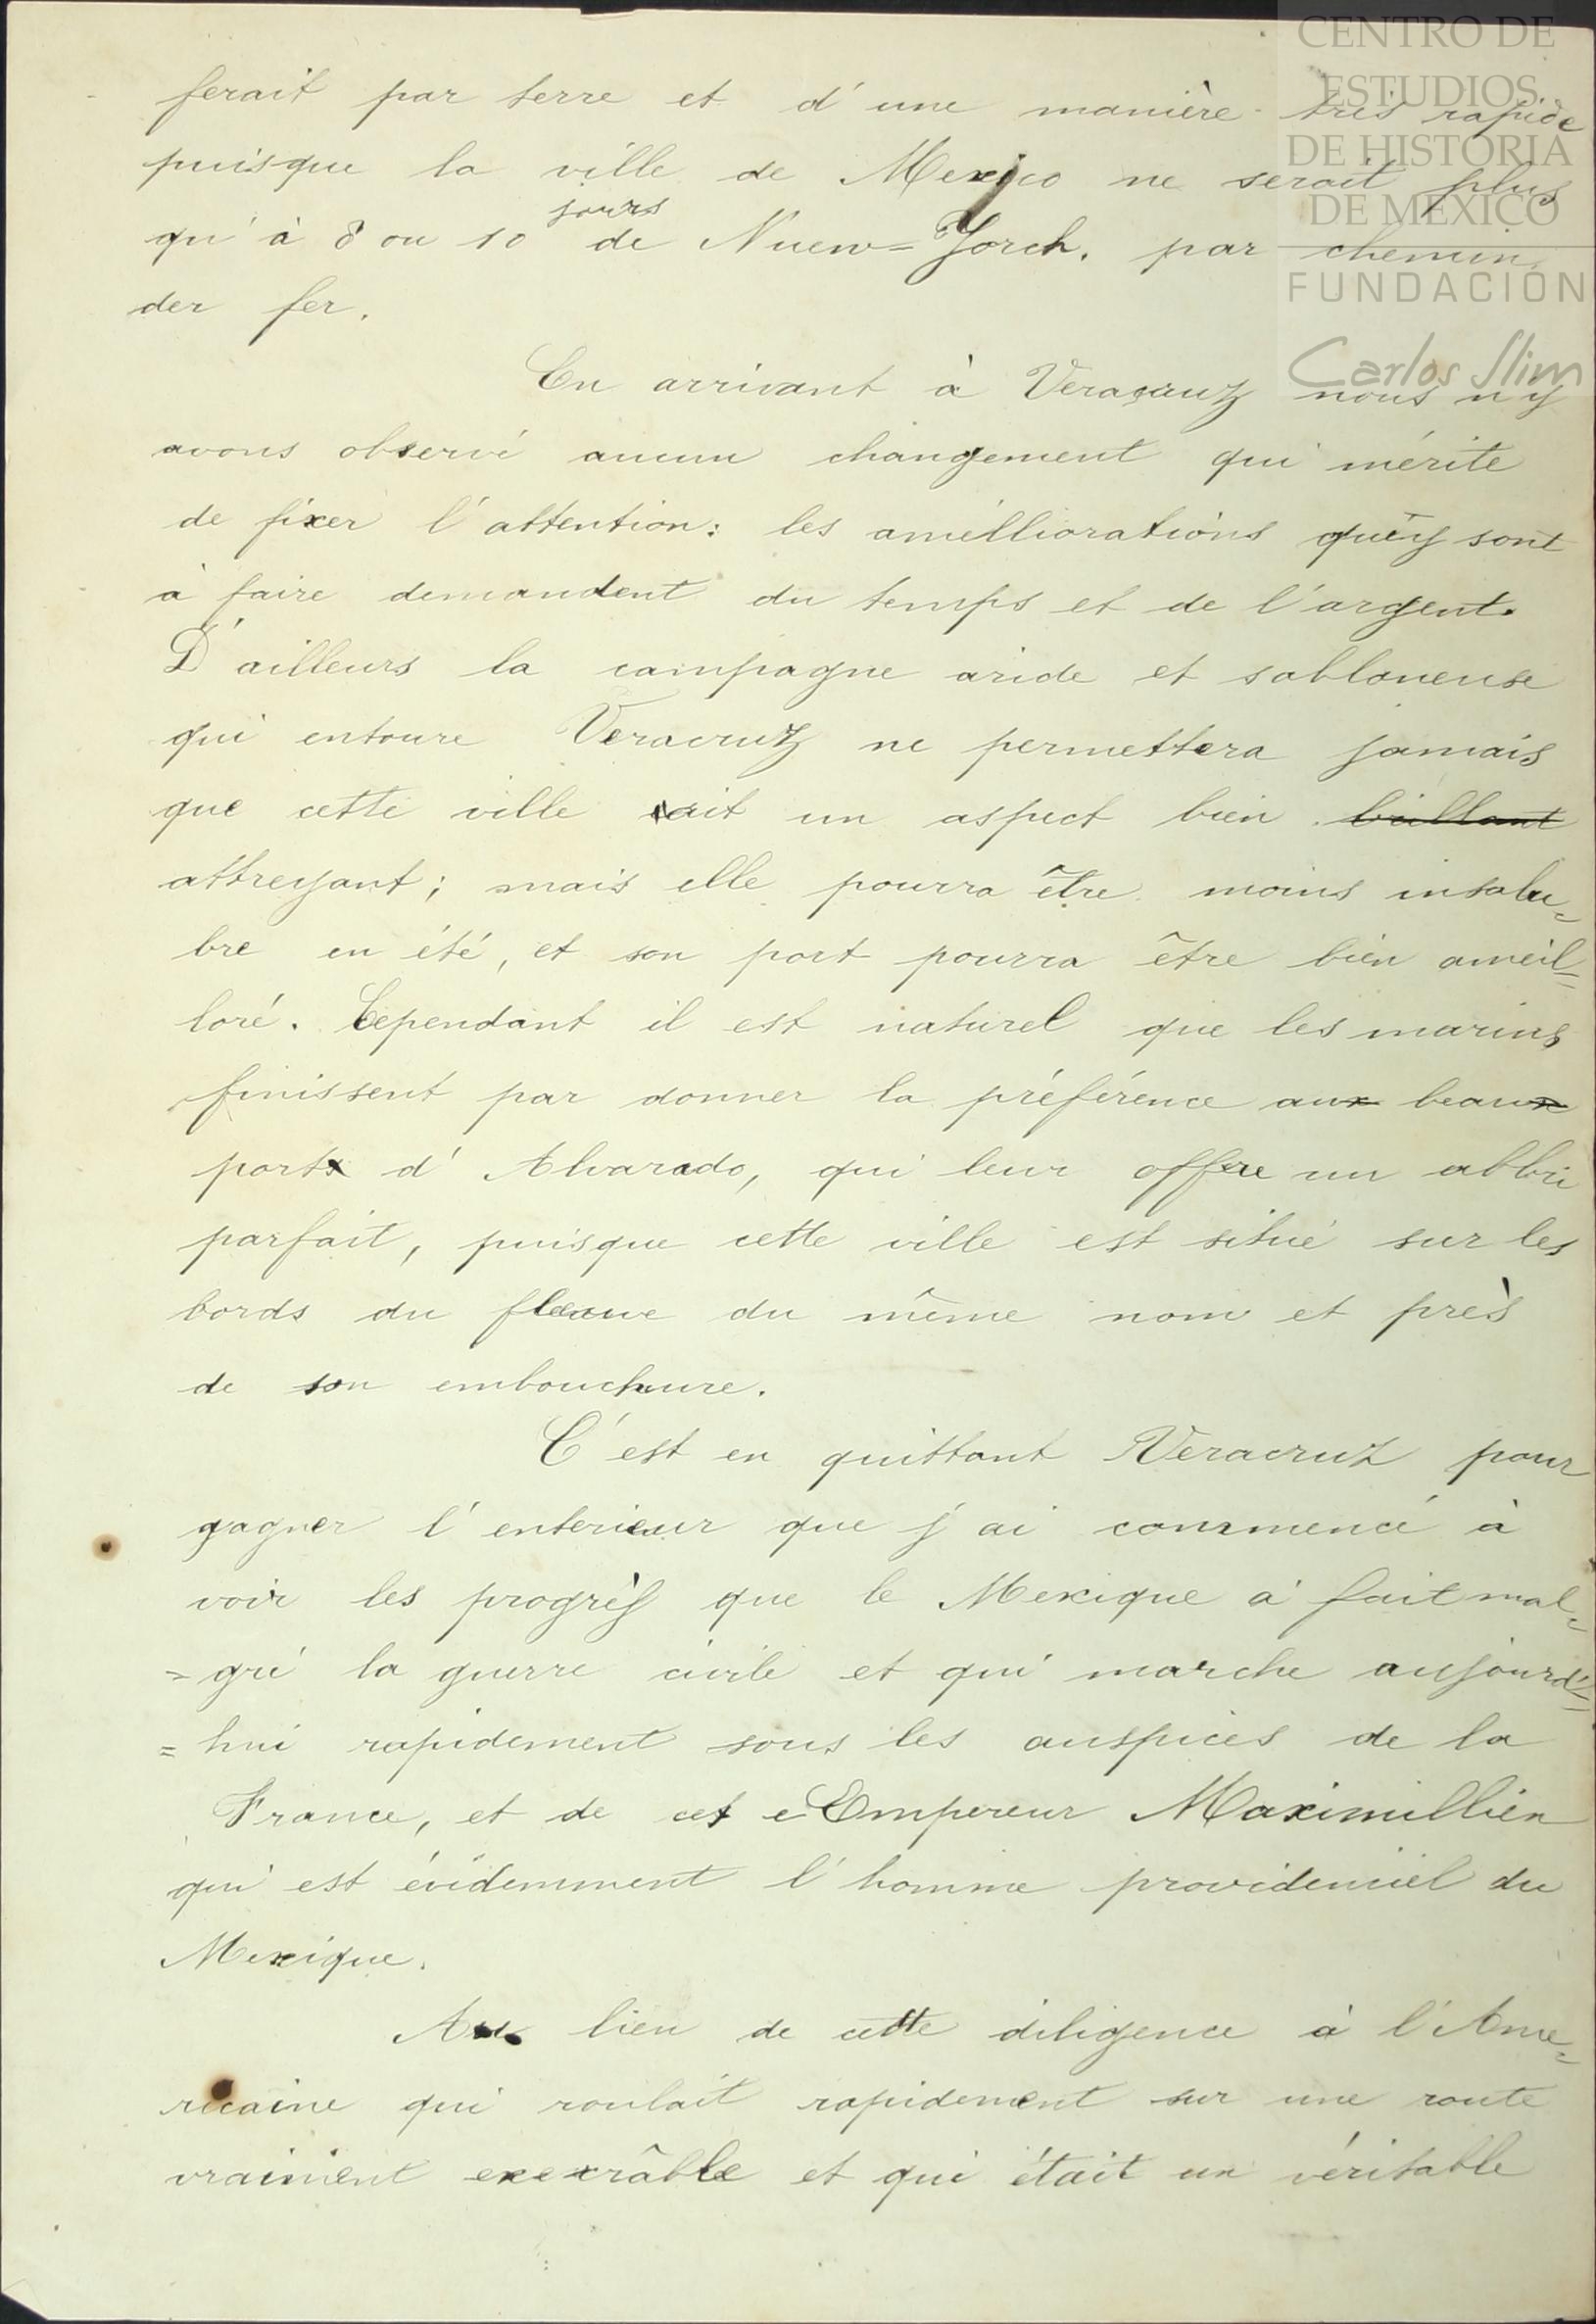 CENTRO DE
ESTUDIOS
DE HISTORIA
DE MEXICO
FUNDACIÓN
Carlos Slim
ferait par terre et d'une manière très rapide
puisque la ville de Mexico ne serait plus
qu'à 8 ou 10 jours de Nuew=Yorck, par chemin
der fer.
En arrivant à Veracruz nous n'y
avons observé aucun changement qui mérite
de fixer l'attention: les amélliorations qu'y sont
à faire demandent du temps et de l'argent.
D'ailleurs la campagne aride et sabloneuse
qui entoure Veracruz ne permettera jamais
que cette ville ait un aspect bien brillant
attreyant; mais elle pourra être moins insalu=
bre en été, et son port pourra être bien ameil=
loré. Cependant il est naturel que les marins
finissent par donner la préférence aux beaux
ports d'Alvarado, qui leur offre un abbri
parfait, puisque cette ville est situé sur les
bords du fleuve du même nom et près
de son embouchure.
C'est en quittant Veracruz pour
gagner l'enterieur que j'ai commencé à
voir les progrès que le Mexique a fait mal=
=gré la guerre civile et qui marche aujourd'=
=hui rapidement sous les auspices de la
France, et de cet Empereur Maximillien
qui est évidemment l'homme providenciel du
Mexique.
Au lieu de cette diligence à l'Ame=
ricaine qui roulait rapidement sur une route
vraiment execrâble et qui était un véritable